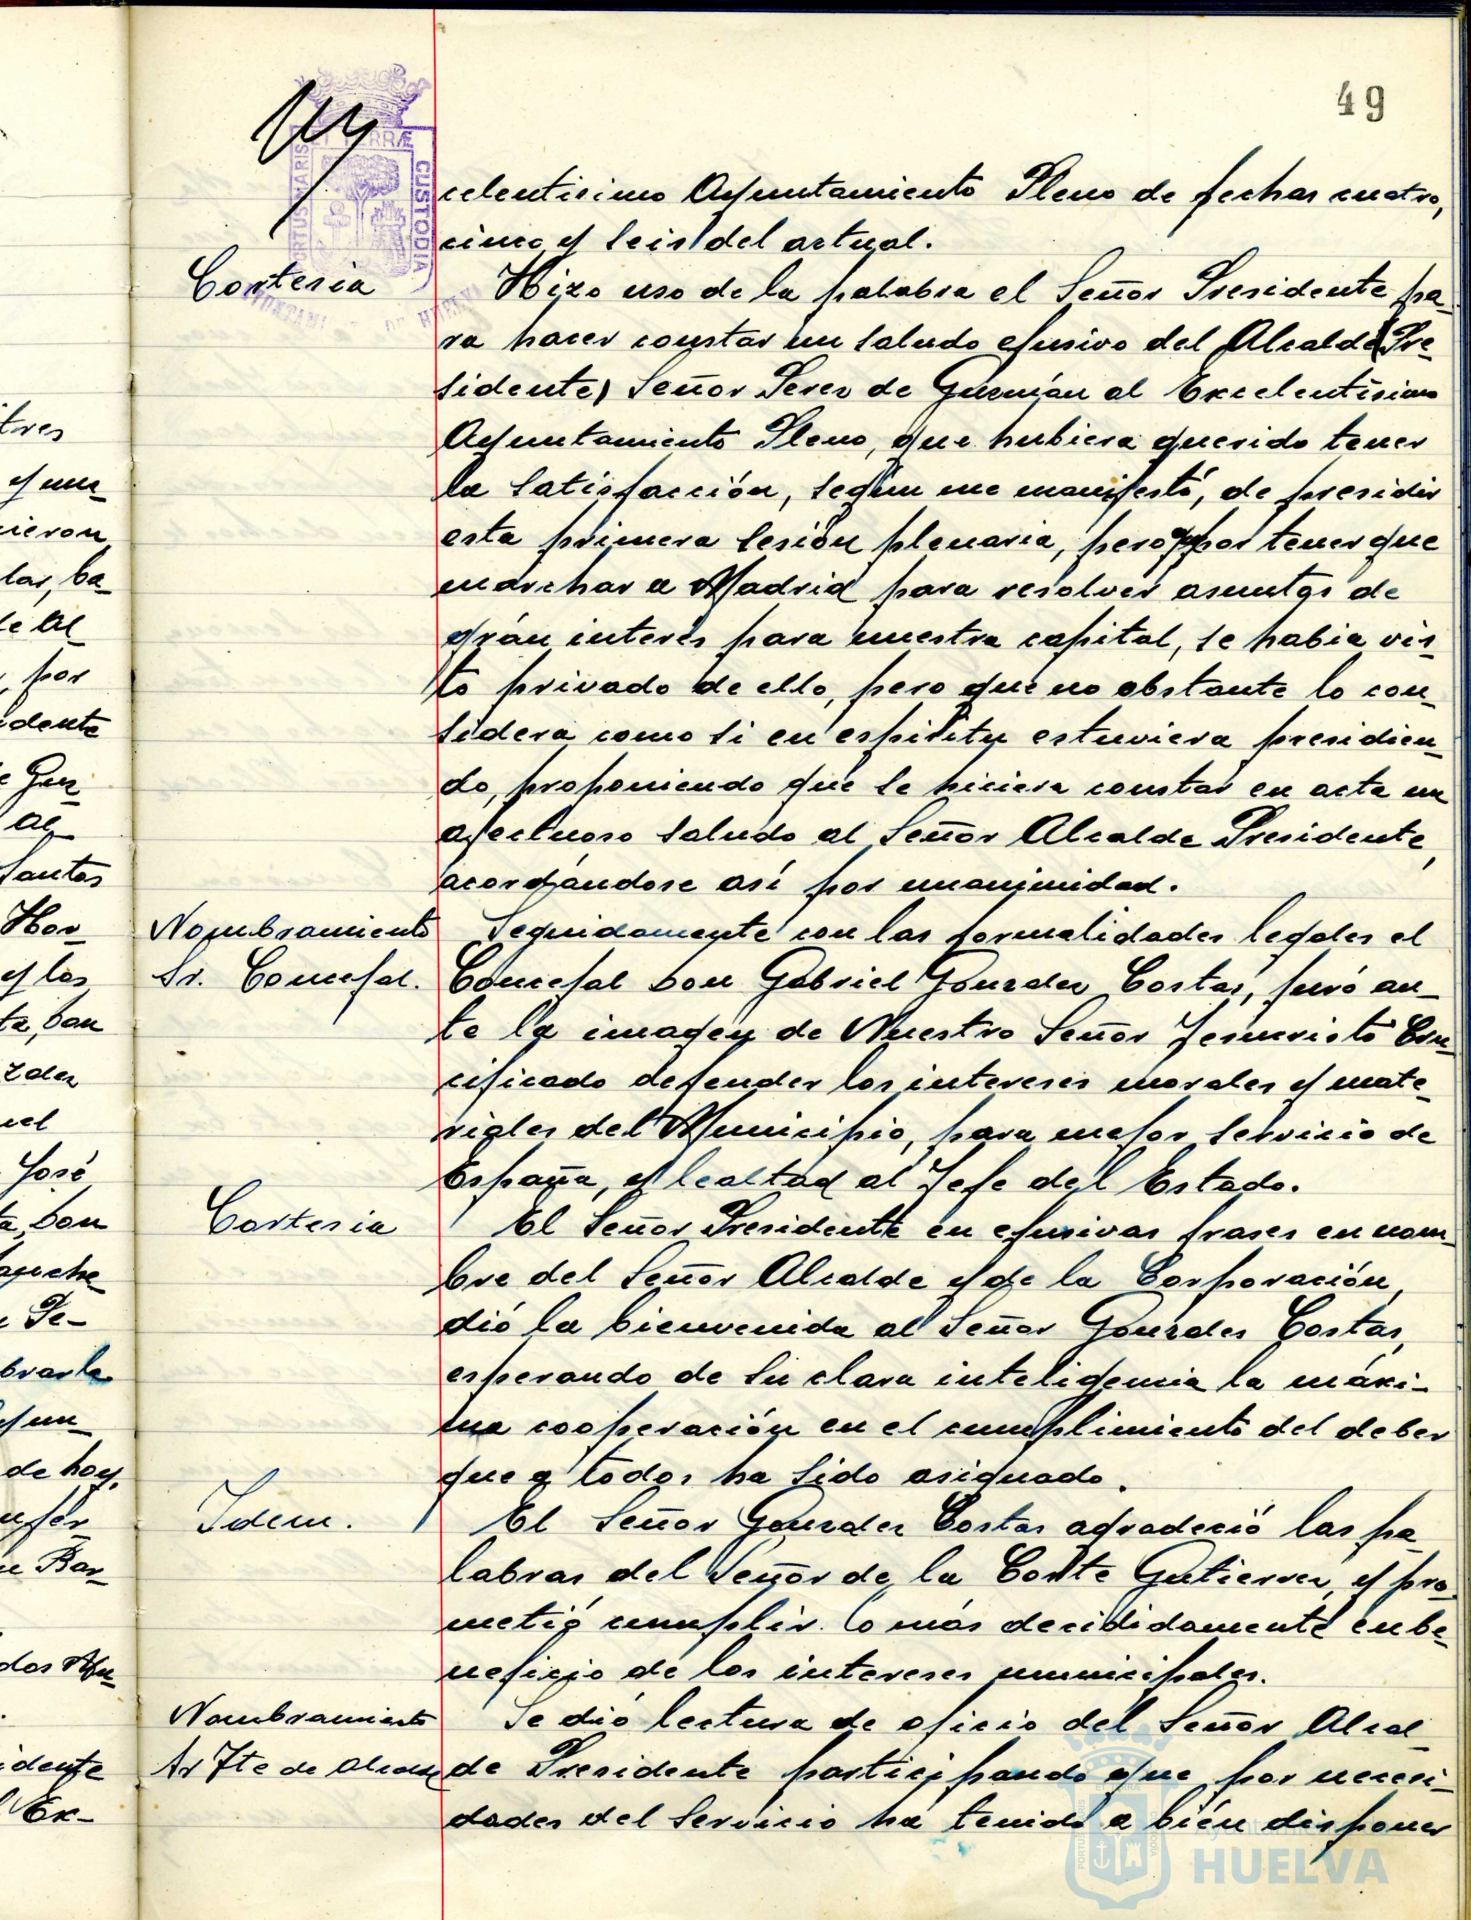 49
PORTUS MARIS ET TERRÆ CUSTODIA
celentisimo Ayuntamiento Pleno de fechas cuatro,
cinco y seis del actual.
Cortesia
Hizo uso de la palabra el Señor Presidente pa-
ra hacer constar un saludo efusivo del Alcalde Pre-
sidente, Señor Perez de Guzmán al Excelentísimo
Ayuntamiento Pleno, que hubiera querido tener
la satisfacción, según me manifestó, de presidir
esta primera sesión plenaria, pero por tener que
marchar a Madrid para resolver asuntos de
grán interés para nuestra capital, se habia vis-
to privado de ello, pero que no obstante lo con-
sidera como si en espíritu estuviera presidien-
do, proponiendo que se hiciera constar en acta un
afectuoso saludo al Señor Alcalde Presidente,
acordándose así por unanimidad.
Nombramiento
Sr. Concejal.
Seguidamente con las formalidades legales el
Concejal Don Gabriel Gonzalez Costas, juró an-
te la imagen de Nuestro Señor Jesucristo Cru-
cificado defender los intereses morales y mate-
riales del Municipio, para mejor servicio de
España, y lealtad al Jefe del Estado.
Cortesia
El Señor Presidente en efusivas frases en nom-
bre del Señor Alcalde y de la Corporación,
dió la bienvenida al Señor Gonzales Costas,
esperando de su clara inteligencia la máxi-
ma cooperación en el cumplimiento del deber
que a todos ha sido asignado.
Idem.
El Señor Gonzalez Costas agradeció las pa-
labras del Señor de la Corte Gutierrez, y pro-
metió cumplir lo más decididamente en be-
neficio de los intereses municipales.
Nombramiento
Sr Tte de Alcalde
Se dió lectura de oficio del Señor Alcal-
de Presidente participando que por necesi-
dades del servicio ha tenido a bién disponer
HUELVA